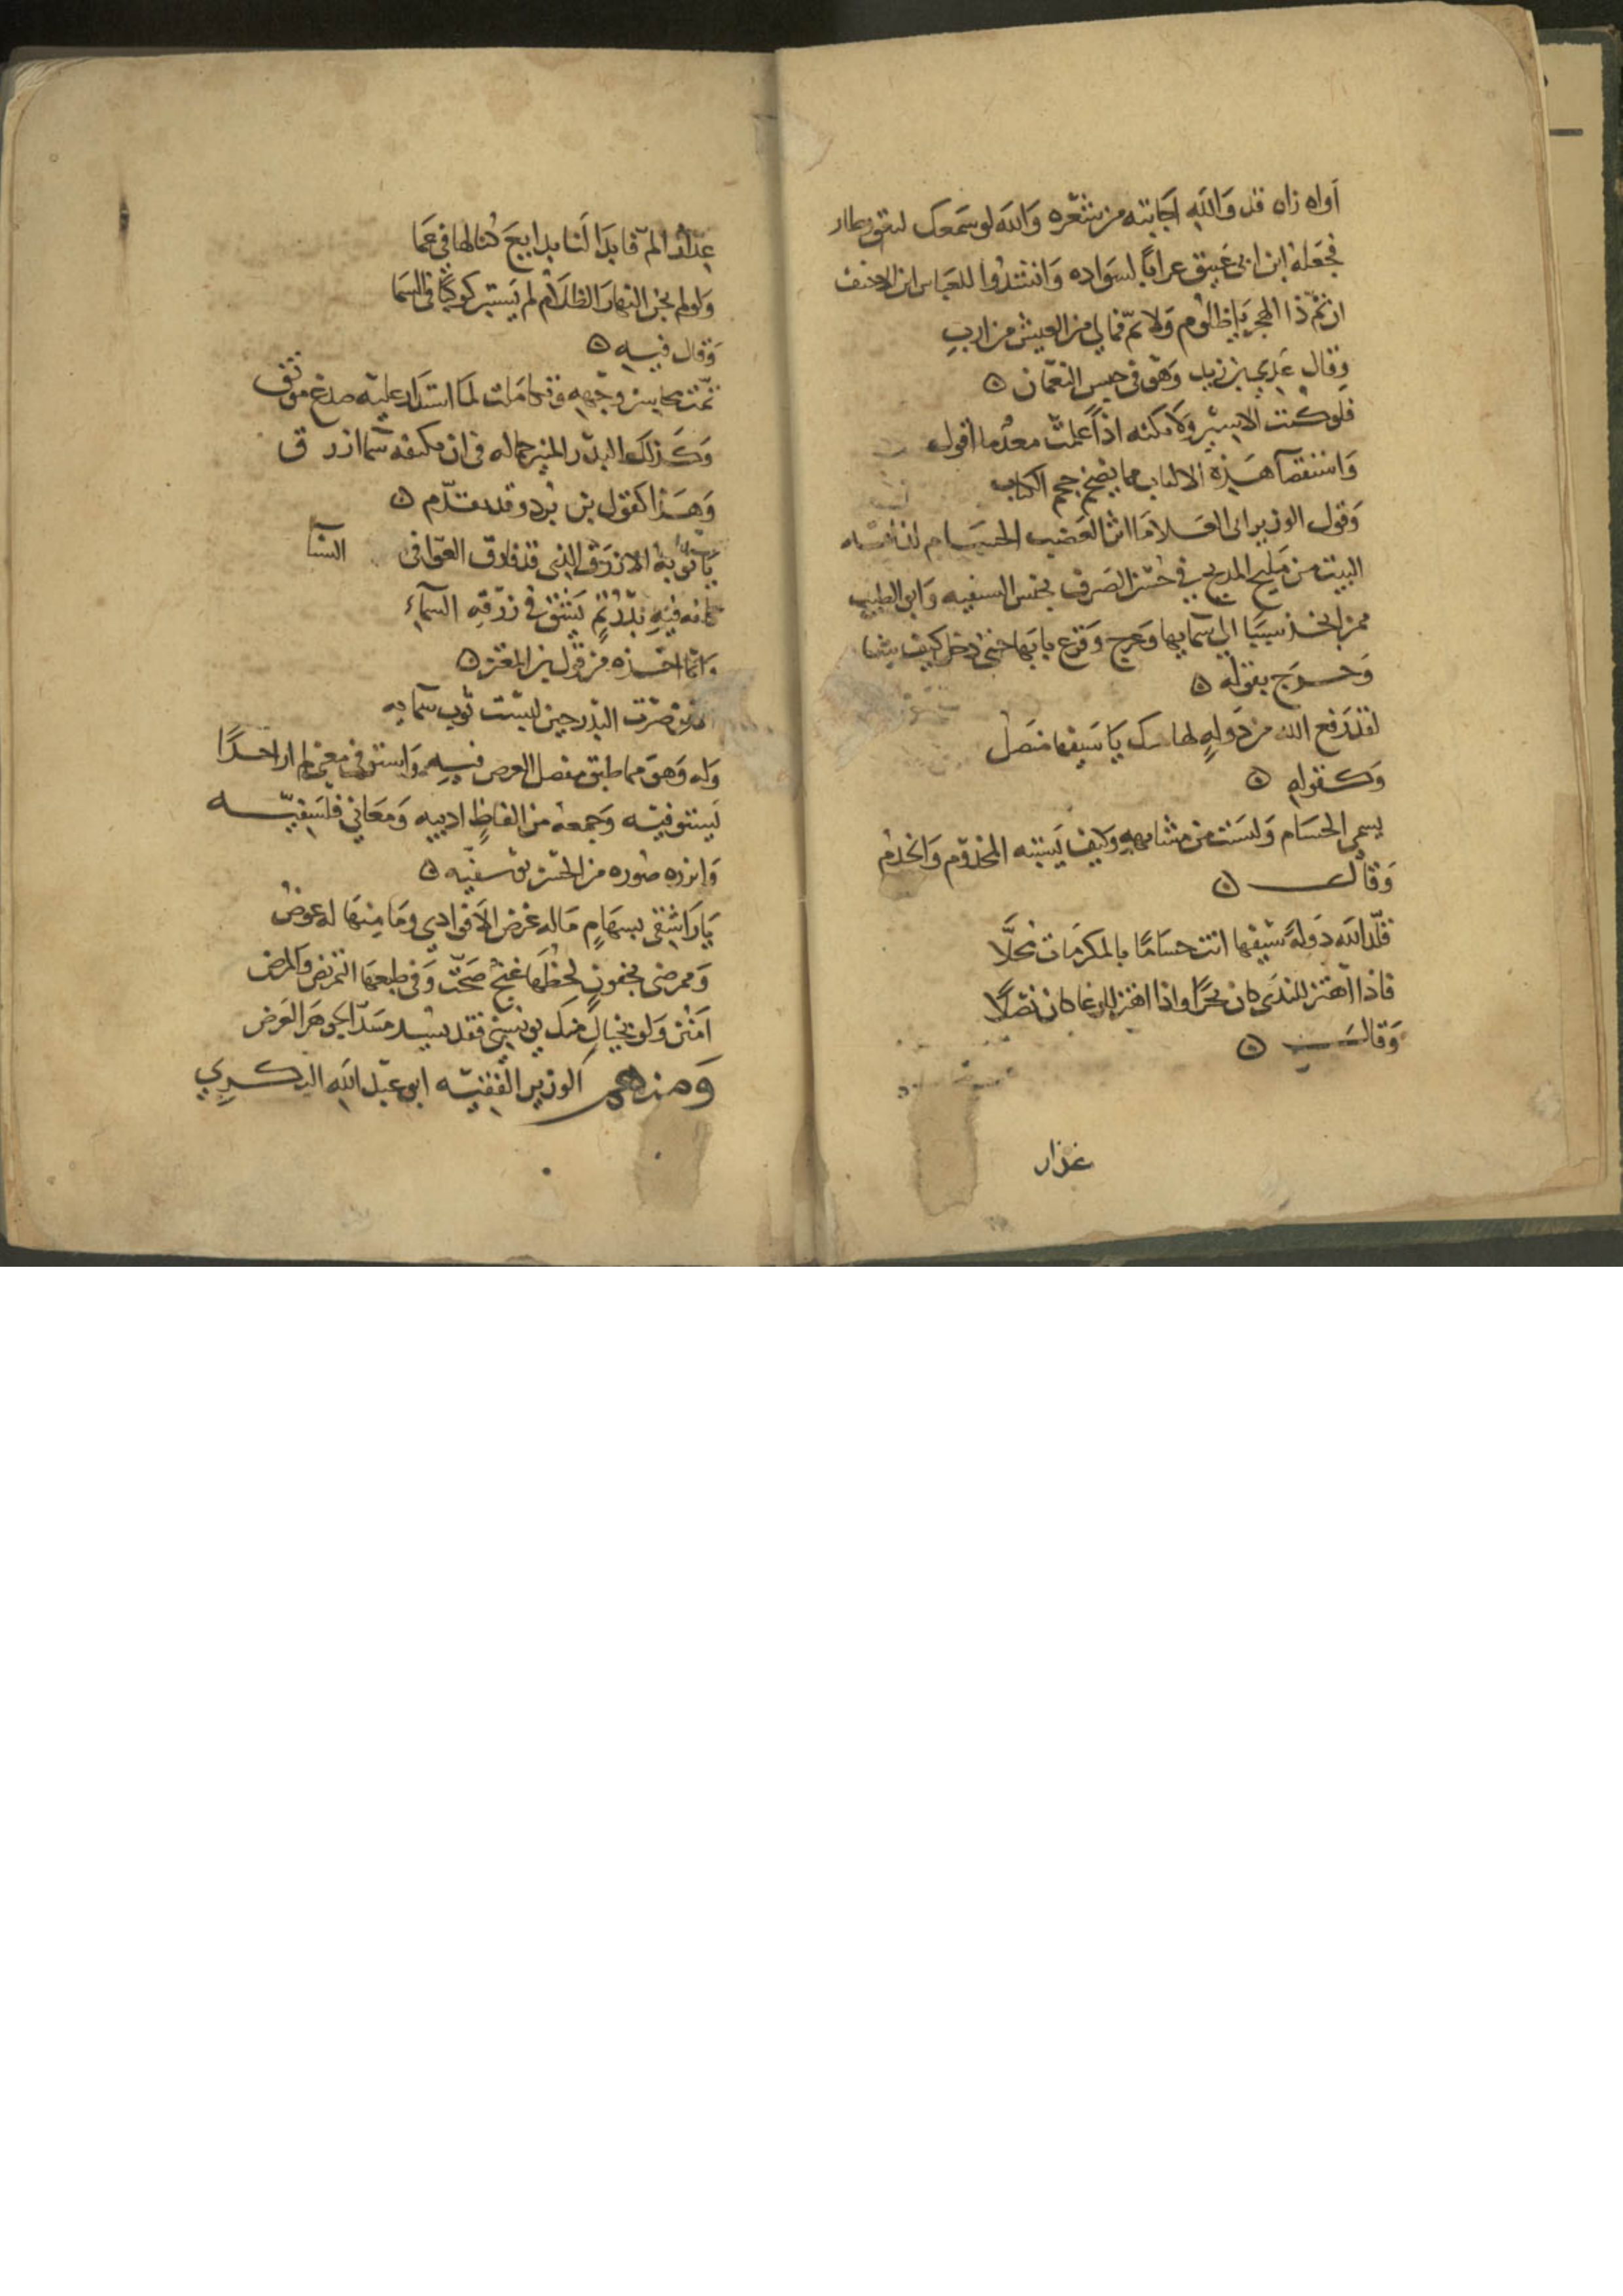 اواه زاه قد والله اجابته من شعره والله لو سمعك لنعق وطار
فجعله ابن ابي عتيق غرابا لسواده وانشدوا للعباس ابن الاحنف
ان تم ذا الهجر يا ظلوم ولا تم فما لي من العيش من ارب
وقال عدي بن زيد وهو في حبس النعمان
فلو كنت الاسير ولا تكنه اذا علمت معد ما اقول
واستقصا هذه الالباب مما يضخم حجم الكتاب
وقول الوزير ابي العلا العضب الحسام
البيت من مليح المديح في حسن الصرف بجنس السفيه وابو الطيب
ممن اتخذ سببا الى سمايها وعرج وقرع بابها حتى دخل كيف شا
وخرج بقوله
لقد رفع الله من دولة لها منك يا سيفها منصل
وكقوله
يسمى الحسام وليست من مشابهة وكيف يشتبه المخدوم والخدم
وقال
قلد الله دولة سيفها انت حساما بالمكرمات محلا
فاذا اهتز للندى كان بحرا واذا اهتز للوغا كان نصلا
وقال
عذار
عذار الم فابدا لنا بدايع كنا لها في عما
ولو لم يجن النهار الظلام لم يستبن كوكب في السما
وقال فيه
تمت محاسن وجهه وتكاملت لما استدار عليه صدغ مونق
وكذلك البدر المنير جماله في ان تكنفه سما ازرق
وهذا كقول بن برد وقد تقدم
يا ثوبه الازرق الذي قد فاق العراقي السنا
كانه فيه بدر تم يشق في زرقه السماء
وانما اخذه من قول بن المعتز
صرت البدر حين لبست ثوب سمايه
وله وهو مما طبق مفصل الغرض فيه واستوفى معنى لم ار احدا
يستوفيه وجمعه من الفاظ ادبيه ومعاني فلسفيه
وابرزه صوره من الحسن يوسفيه
يا راشقي بسهام ما لها غرض الا فوادي وما منها له عوض
وممرضي بجفون لحظها غنج صحت وفي طبعها التمريض والمرض
امنن ولو بخيال منك يونسني فقد يسد مسد الجوهر العرض
ومنهم الوزير الفقيه ابو عبد الله البكري